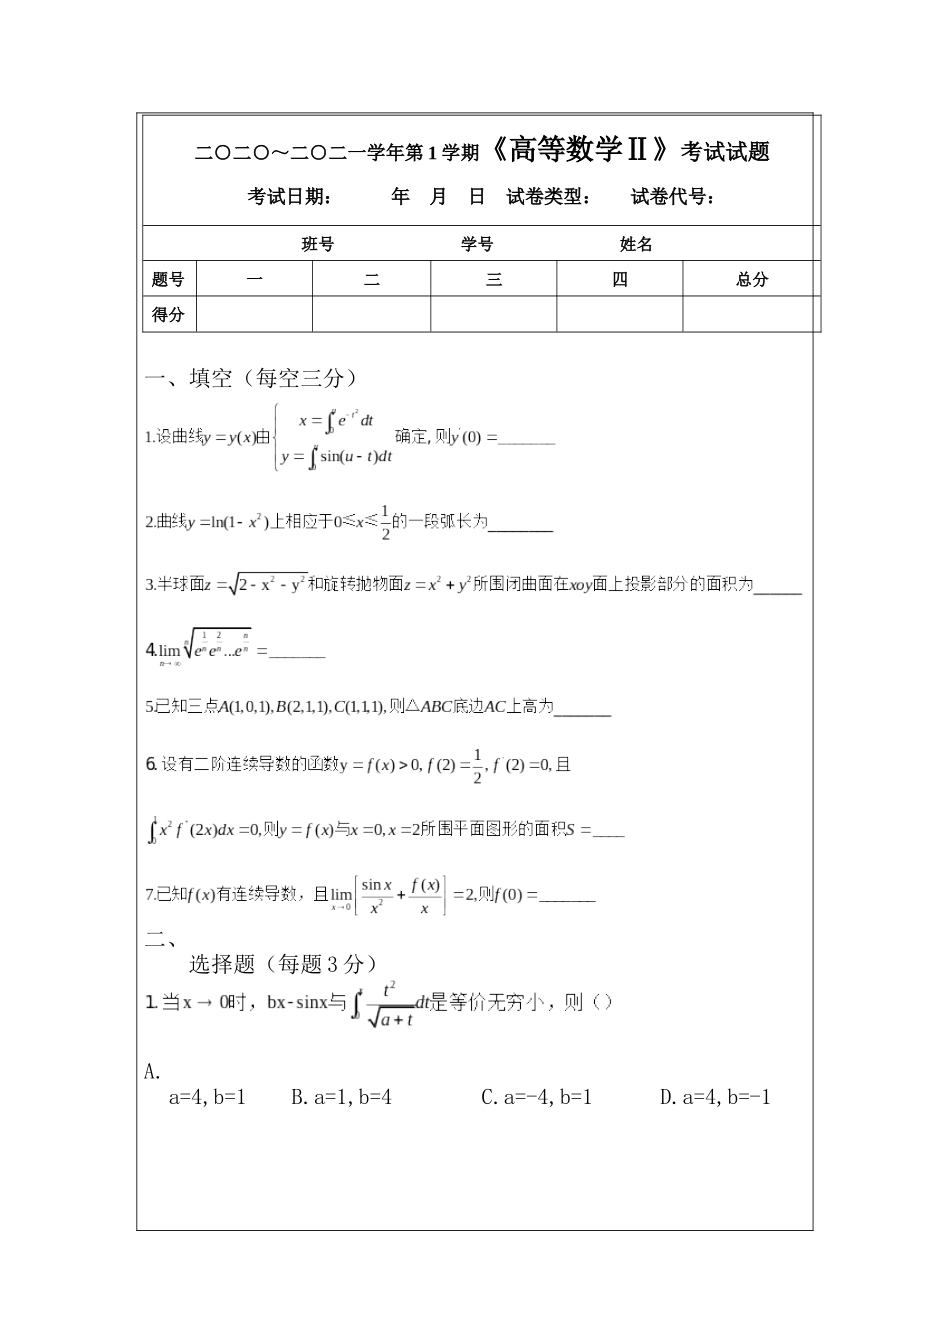 二〇二〇～二〇二一学年第 1 学期《高等数学Ⅱ》考试试题
考试日期： 年 月 日 试卷类型： 试卷代号：
班号 学号 姓名
题号 一 二 三 四 总分
得分
一、填空（每空三分）
1.设曲线y = y(x)由{x = ∫₀ᵘ e^(-t²)dt, y = ∫₀ᵘ sin(u - t)dt 确定, 则y'(0) =_______
2.曲线y = ln(1 - x²)上相应于0≤x≤1/2的一段弧长为________
3.半球面z = √(2 - x² - y²)和旋转抛物面z = x² + y²所围闭曲面在xoy面上投影部分的面积为______
4.lim(n→∞) ⁿ√(e^(1/n)e^(2/n)...e^(n/n)) =_______
5.已知三点A(1,0,1),B(2,1,1),C(1,1,1),则△ABC底边AC上高为_______
6.设有二阶连续导数的函数y = f(x) > 0, f(2) = 1/2, f'(2) = 0,且
∫₀¹ x² f''(2x)dx =0,则y = f(x)与x = 0, x = 2所围平面图形的面积S =____
7.已知f(x)有连续导数，且lim(x→0)[sin x/x² + f(x)/x] = 2,则f(0) =_______
二、
选择题（每题 3 分）
1.当x → 0时，bx-sinx与∫₀ˣ t²/√(a + t) dt是等价无穷小，则()
A.
a=4,b=1 B.a=1,b=4 C.a=-4,b=1 D.a=4,b=-1